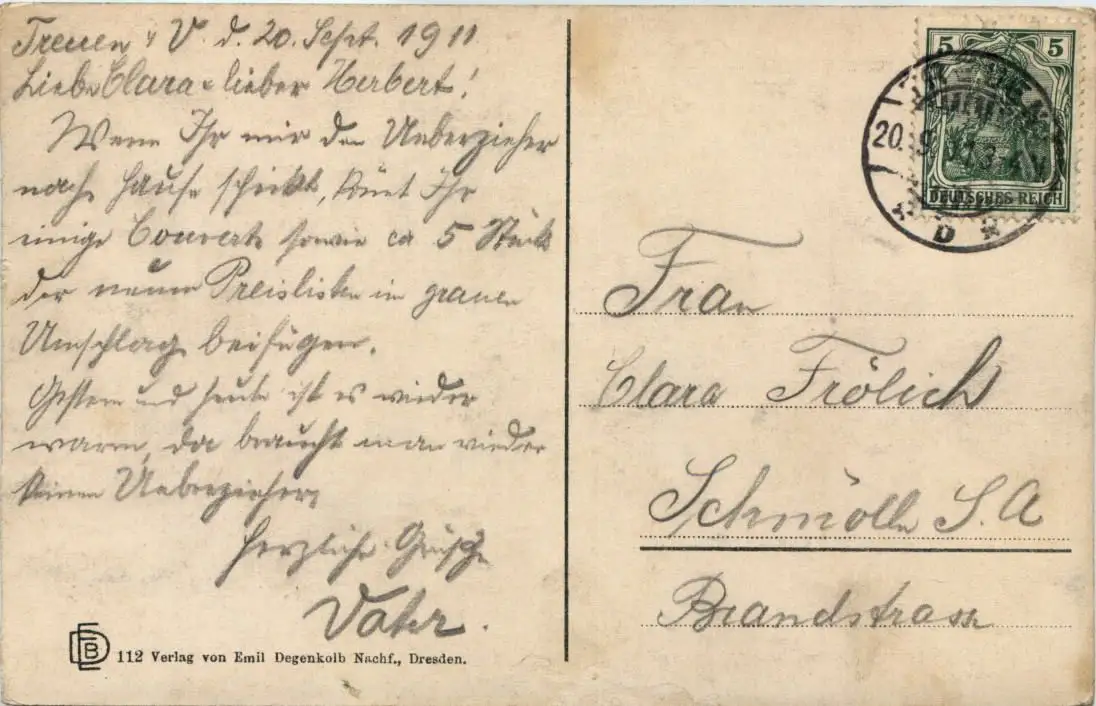 Treuen i/ V. d. 20. Sept. 1911
Liebe Clara u lieber Herbert!
Wenn Ihr mir den Ueberzieher
nach Hause schickt, könt Ihr
einige Couverts sowie ca 5 Stück
der neuen Preislisten im grauen
Umschlag beifügen.
Gestern und heute ist es wieder
warm, da braucht man wieder
keinen Ueberzieher,
Herzliche Grüsse
Vater.
112 Verlag von Emil Degenkolb Nachf., Dresden.
5 5
20. 9. 11. 3-4 N.
DEUTSCHES REICH
* D *
Frau
Clara Frölich
Schmölln S. A
Brandstrasse